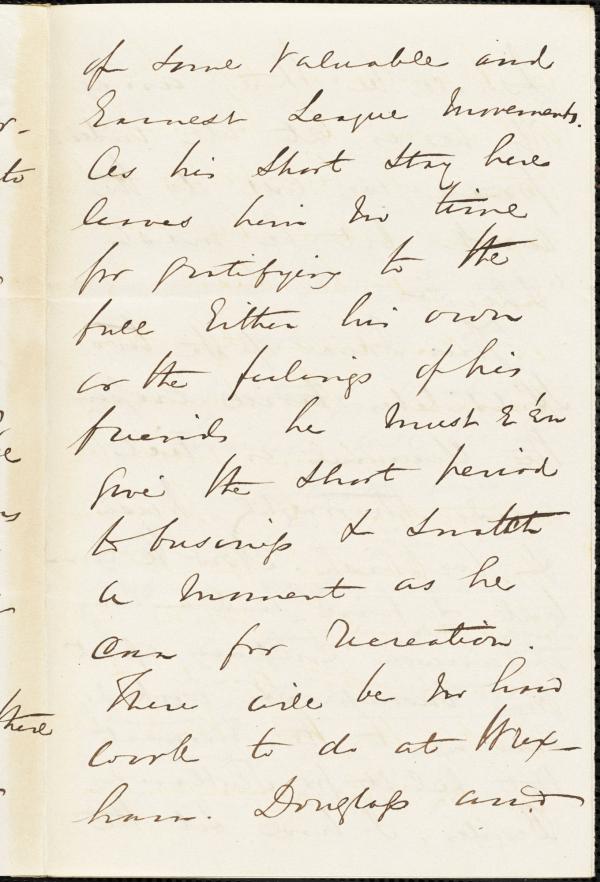 of some valuable and
Earnest League movements.
As his short stay here
leaves him no time
for gratifying to the
full Either his own
or the feelings of his
friends he must E'en
give the short period
to business & snatch
a moment as he
can for recreation.
There will be no hard
work to do at Wrex-
ham. Douglass and
to
there